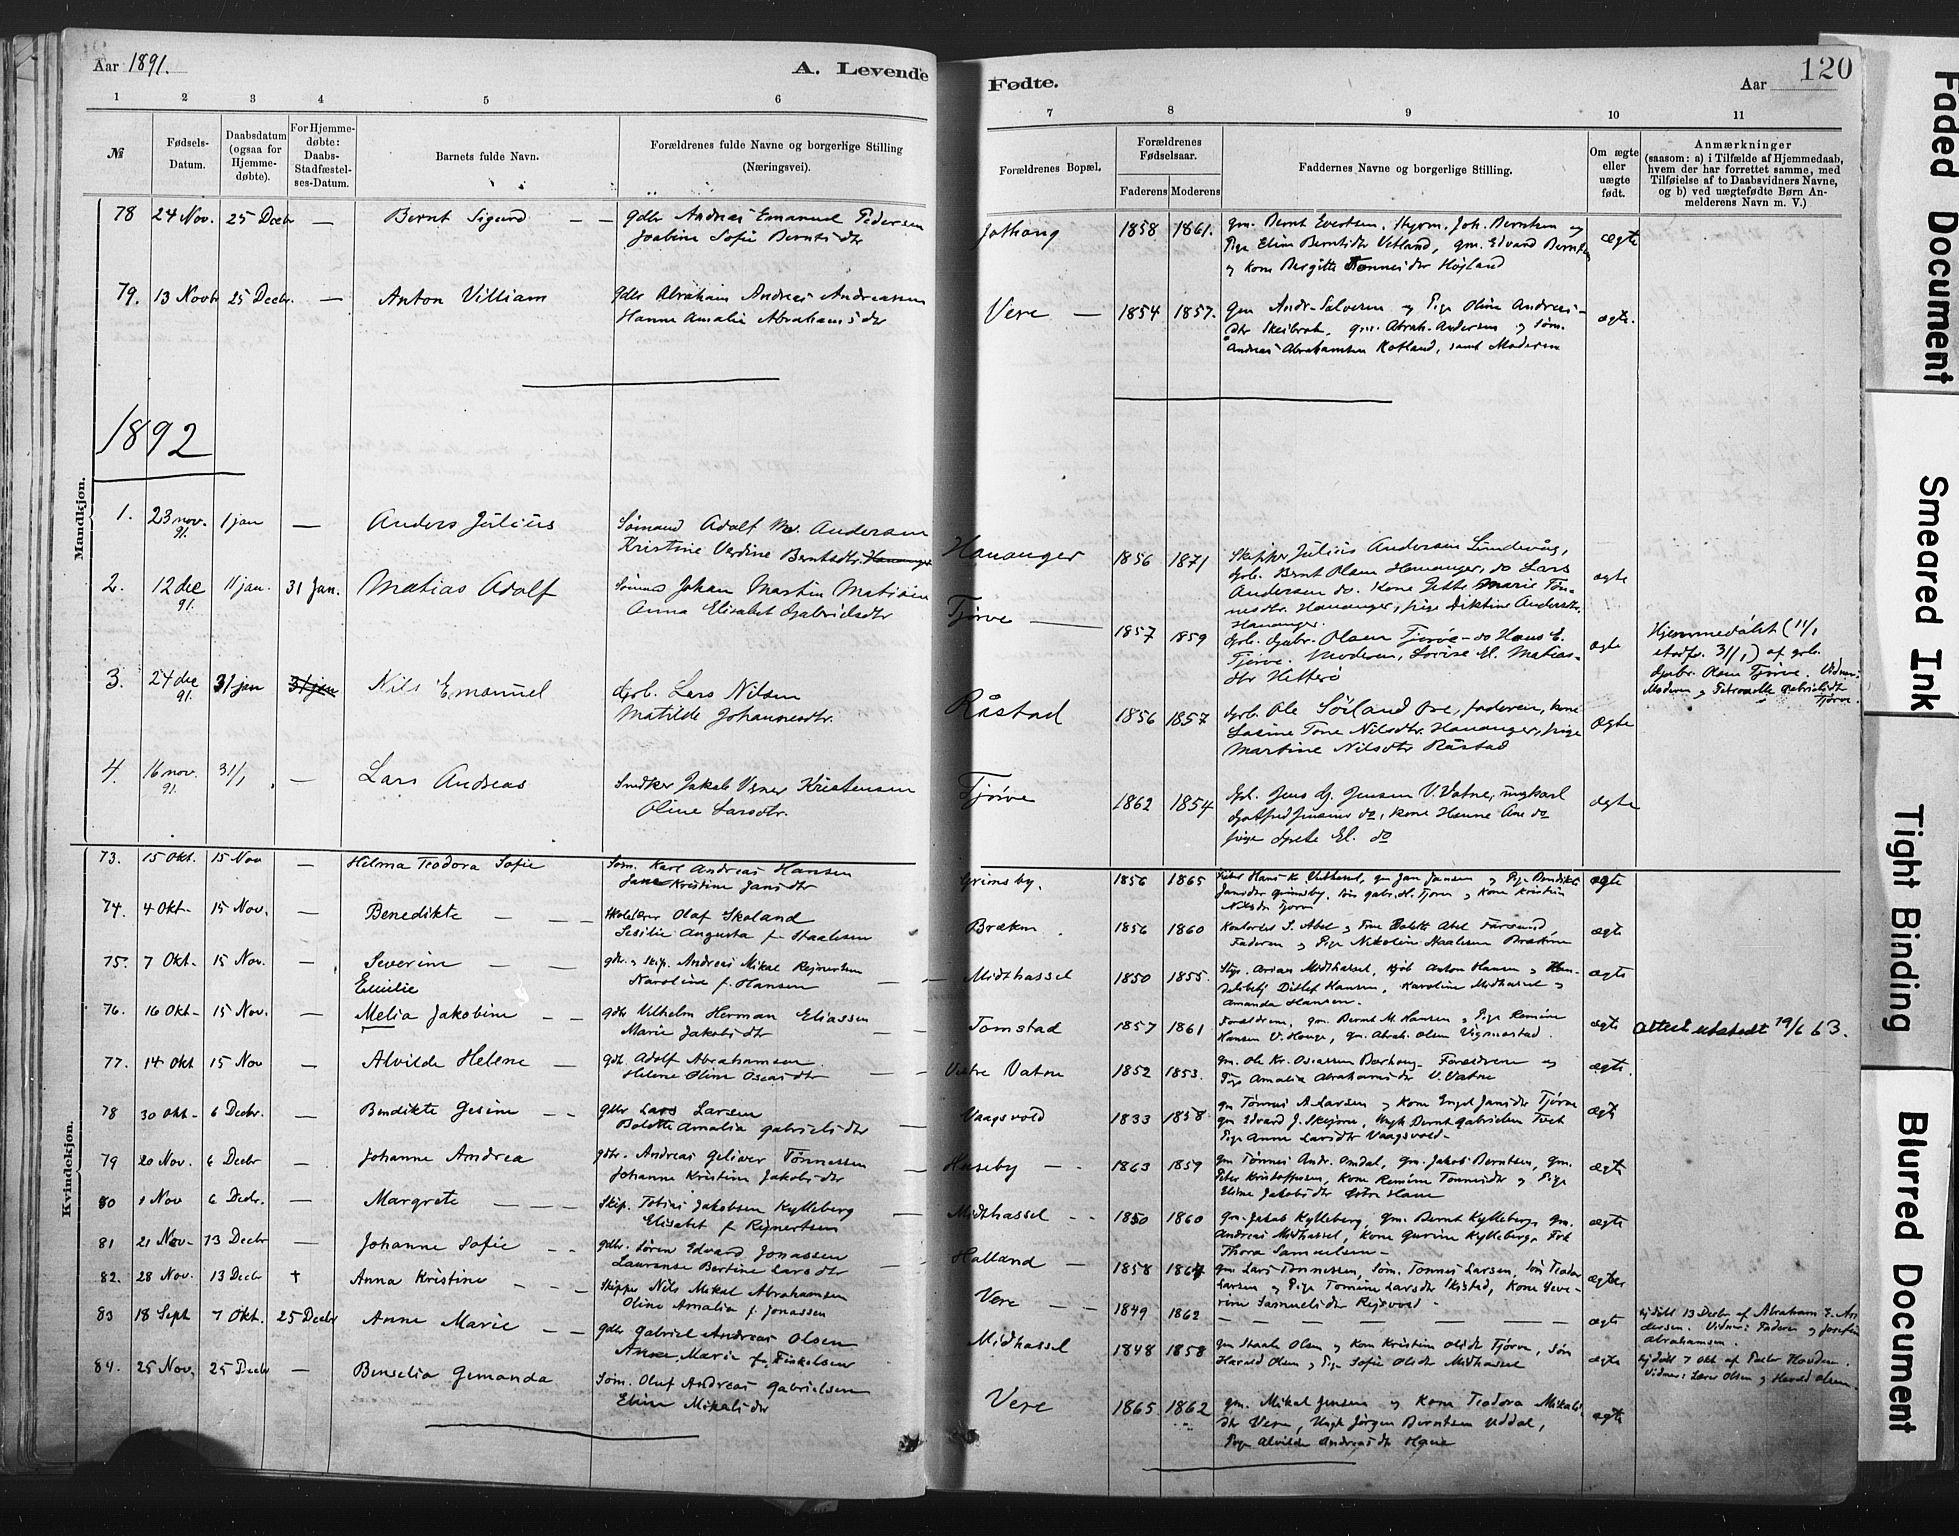 Aar 1891.
A. Levende
Fødte.
Aar
120
1 2 3 4 5 6
7 8 9 10 11
№
Fødsels-
Datum.
Daabsdatum
(ogsaa for
Hjemme-
døbte).
For Hjemme-
døbte:
Daabs-
Stadfæstel-
ses-Datum.
Barnets fulde Navn.
Forældrenes fulde Navne og borgerlige Stilling
(Næringsvei).
Forældrenes Bopæl.
Forældrenes
Fødselsaar.
Faderens Moderens
Faddernes Navne og borgerlige Stilling.
Om ægte
eller
uægte
født.
Anmærkninger
(saasom: a) i Tilfælde af Hjemmedaab,
hvem der har forrettet samme, med
Tilføielse af to Daabsvidners Navne,
og b) ved uægtefødte Børn An-
melderens Navn m. V.)
Mandkjøn.
78 24 Nov. 25 Decbr — Bernt Sigurd — — Gdbr Andreas Emanuel Pedersen
Joabine Sofie Berntsdtr
1858 1861. gm. Bernt Evertsen, Joh. Berntsen og
Pige Eline Berntsdtr Vetland, gm. Edvard Berntsen
og Kone Bergitte Tønnesdtr Høyland
ægte
79. 13 Novb 25 Decbr. — Anton Villiam Gdbr Abraham Andreas Andreassen
Hanne Amalie Abrahamsdtr
Vere — 1854 1857. Gm Andr. Salvesen og Pige Oline Andreas-
dtr Skeibrok, gm. Abrah. Andersen og Søm.
Andreas Abrahamsen Kotland, samt Moderen
ægte.
1892
1. 23 nov. 91. 1 jan — Anders Julius Sømand Adolf M. Andersen
Kristine Verdine Berntsdtr. Hananger
Hananger 1856 1871 Skipper Julius Andersen Lundevåg,
Gbr. Bernt Olsen Hananger, do Lars
Andersen do. Kone Gitte Marie Tøn-
nesdtr. Hananger, pige Diktine Andersdtr.
Hananger.
ægte
2. 12 dec 91. 11 jan. 31 Jan. Matias Adolf Sømand Johan Martin Matisen
Anna Elisabet Gabrielsdtr
Tjørve — 1857 1859 Gbr. Gabr. Olsen Tjørve — do Hans E.
Tjørve. Moderen, Lovise El. Matias-
dtr Hitterø
ægte
Hjemmedøbt (11/1
stadf. 31/1) af gbr.
Gabr. Olsen Tjørve. Vidner:
Moderen og Petronelle Gabrielsdt
Tjørve.
3. 24 dec 91. 31 jan 31 jan Nils Emanuel Gbr. Lars Nilsen
Matilde Johannesdtr.
Råstad 1856 1857 Gbr. Ole Sørland Ore, faderen, kone
Lasine Tone Nilsdtr. Hananger, pige
Martine Nilsdtr Råstad
Ægte
4. 16 nov. 91. 31/1 — Lars Andreas Snedker Jakob Verner Kristensen
Oline Larsdtr.
Tjørve 1862 1854 Gbr. Jens G. Jensen V. Vatne, ungkarl
Gotfred Jensen do, kone Hanne Ane do
pige Grete El. do
ægte
Kvindekjøn.
73. 15 Okt. 15 Nov — Helma Teodora Sofie Søm. Karl Andreas Hansen
Jane Kristine Jansdtr
Grimsby. 1856 1865 Peter Hans K. gm Jan Jansen og Pige Bendikte
Jansdtr Grimsby, Søm Gabr. H. Tjørn og Kone Kristine
Nilsdtr Tjørn
ægte
74. 4 Okt- 15 Nov. — Benedikte — — — Skolelærer Olaf Skoland
Sesilie Augusta f. Staalesen
Brækne. 1856 1860 S. Abel og Frue Bolette Abel Farsund,
Faderen og Pige Nikoline Staalesen Brækne
ægte
75. 7 Okt- 15 Nov. — Severine — —
Emilie
Gdb. og Skip. Andreas Mikal Rejnertsen
Karoline f. Hansen
Midthassel 1850 1855. Styr. Midthassel, Kjøb. Anton Hansen og Han-
delsbetj Ditlef Hansen, Karoline Midthassel og
Amanda Hansen.
ægte
76. 16 Okt- 15 Nov. — Melia Jakobine — Gdbr Vilhelm Herman Eliassen
Marie Jakobsdtr
Tomstad 1857 1861 Forældrene, gm. Bernt M. Hansen og Pige Romine
Hansen V. Hauge, gm. Abrah. Olsen Vigmostad.
ægte Attest utstedt 19/6 63.
77. 14 Okt 15 Nov — Alvilde Helene — Gdb. Adolf Abrahamsen
Helene Oline Oseasdtr
Vestre Vatne 1852 1853. gm. Ole Kr. Oseassen Berhaug, Forældrene og
Pige Amalia Abrahamsdtr V. Vatne
ægte.
78 30 Okt- 6 Decbr. — Bendikte Gesine — — Gdbr Lars Larsen
Bolette Amalia Gabrielsdtr
Vaagsvold 1833 1858. gm Tønnes A. Larsen og Kone Engel Jansdtr Tjørve
gm Edvard J. Skejbrn, Ungk Bernt Gabrielsen Tvet
Pige Anne Larsdtr Vaagsvold —
ægte
79 20 Nov. 6 Decbr — Johanne Andrea Gdbr. Andreas Geliver Tønnessen
Johanne Kristine Jakobsdtr
Huseby — - 1863 1859 gm Tønnes Andr. Omdal, gm. Jakob Berntsen, gm.
Peter Kristoffersen, Kone Romine Tønnesdtr og Pige
Eline Jakobsdtr Østre Haue
ægte
80 1 Nov 6 Decbr. — Margrete — — — Skip. Tobias Jakobsen Kylleberg
Elisabet f. Rejnertsen
Midthassel - - 1850 1860 gm. Jakob Kylleberg, gm. Bernt Kylleberg, gm.
Andreas Midthassel, Kone Gurine Kylleberg, Frk
Thora Samuelsen —
ægte
81 21 Nov- 13 Decbr — Johanne Sofie - - Gdbr. Søren Edvard Jonassen
Laurense Bertine Larsdtr
Halland — 1858 1867 gm. Lars Tønnessen, Søm. Tønnes Larsen, Søm Teodor
Larsen og Pige Tomine Larsdtr Skistad, Kone Seve-
rine Samuelsdtr Rejsvold —
ægte
82. 28 Nov. 13 Decbr † Anna Kristine - - Skipper Nils Mikal Abrahamsen
Oline Amalia f. Jonassen
Vere — — 1849 1862 — — — — — —
ægte
hjdøbt 13 Decbr af Abraham E. An-
dersen. Vidner: Faderen og Josefine
Abrahamsen.
83 18 Sept 7 Okt. 25 Decbr Anne Marie — — Gdbr Gabriel Andreas Olsen
Anne Marie f. Tiskelsen
Midhassel 1848 1858 gm Staale Olsen og Kone Kristine Olsdtr Tjørve, Søm
Harald Olsen og Pige Sofie Olsdtr Midhassel
ægte
hjdøbt 7 Okt af Peder Hovden.
Vidner: Lars Olsen og Harald Olsen
84. 25 Nov. 25 Decbr — Benselia Gemanda Søm. Oluf Andreas Gabrielsen
Eline Mikalsdtr
Vere 1865 1862 gm. Mikal Jensen og Kone Teodora Mikals-
dtr Vere, Ungk Jørgen Berntsen Uddal,
Pige Alvilde Andreasdtr Haue
ægte
Faded Document
Smeared Ink
Tight Binding
Blurred Document